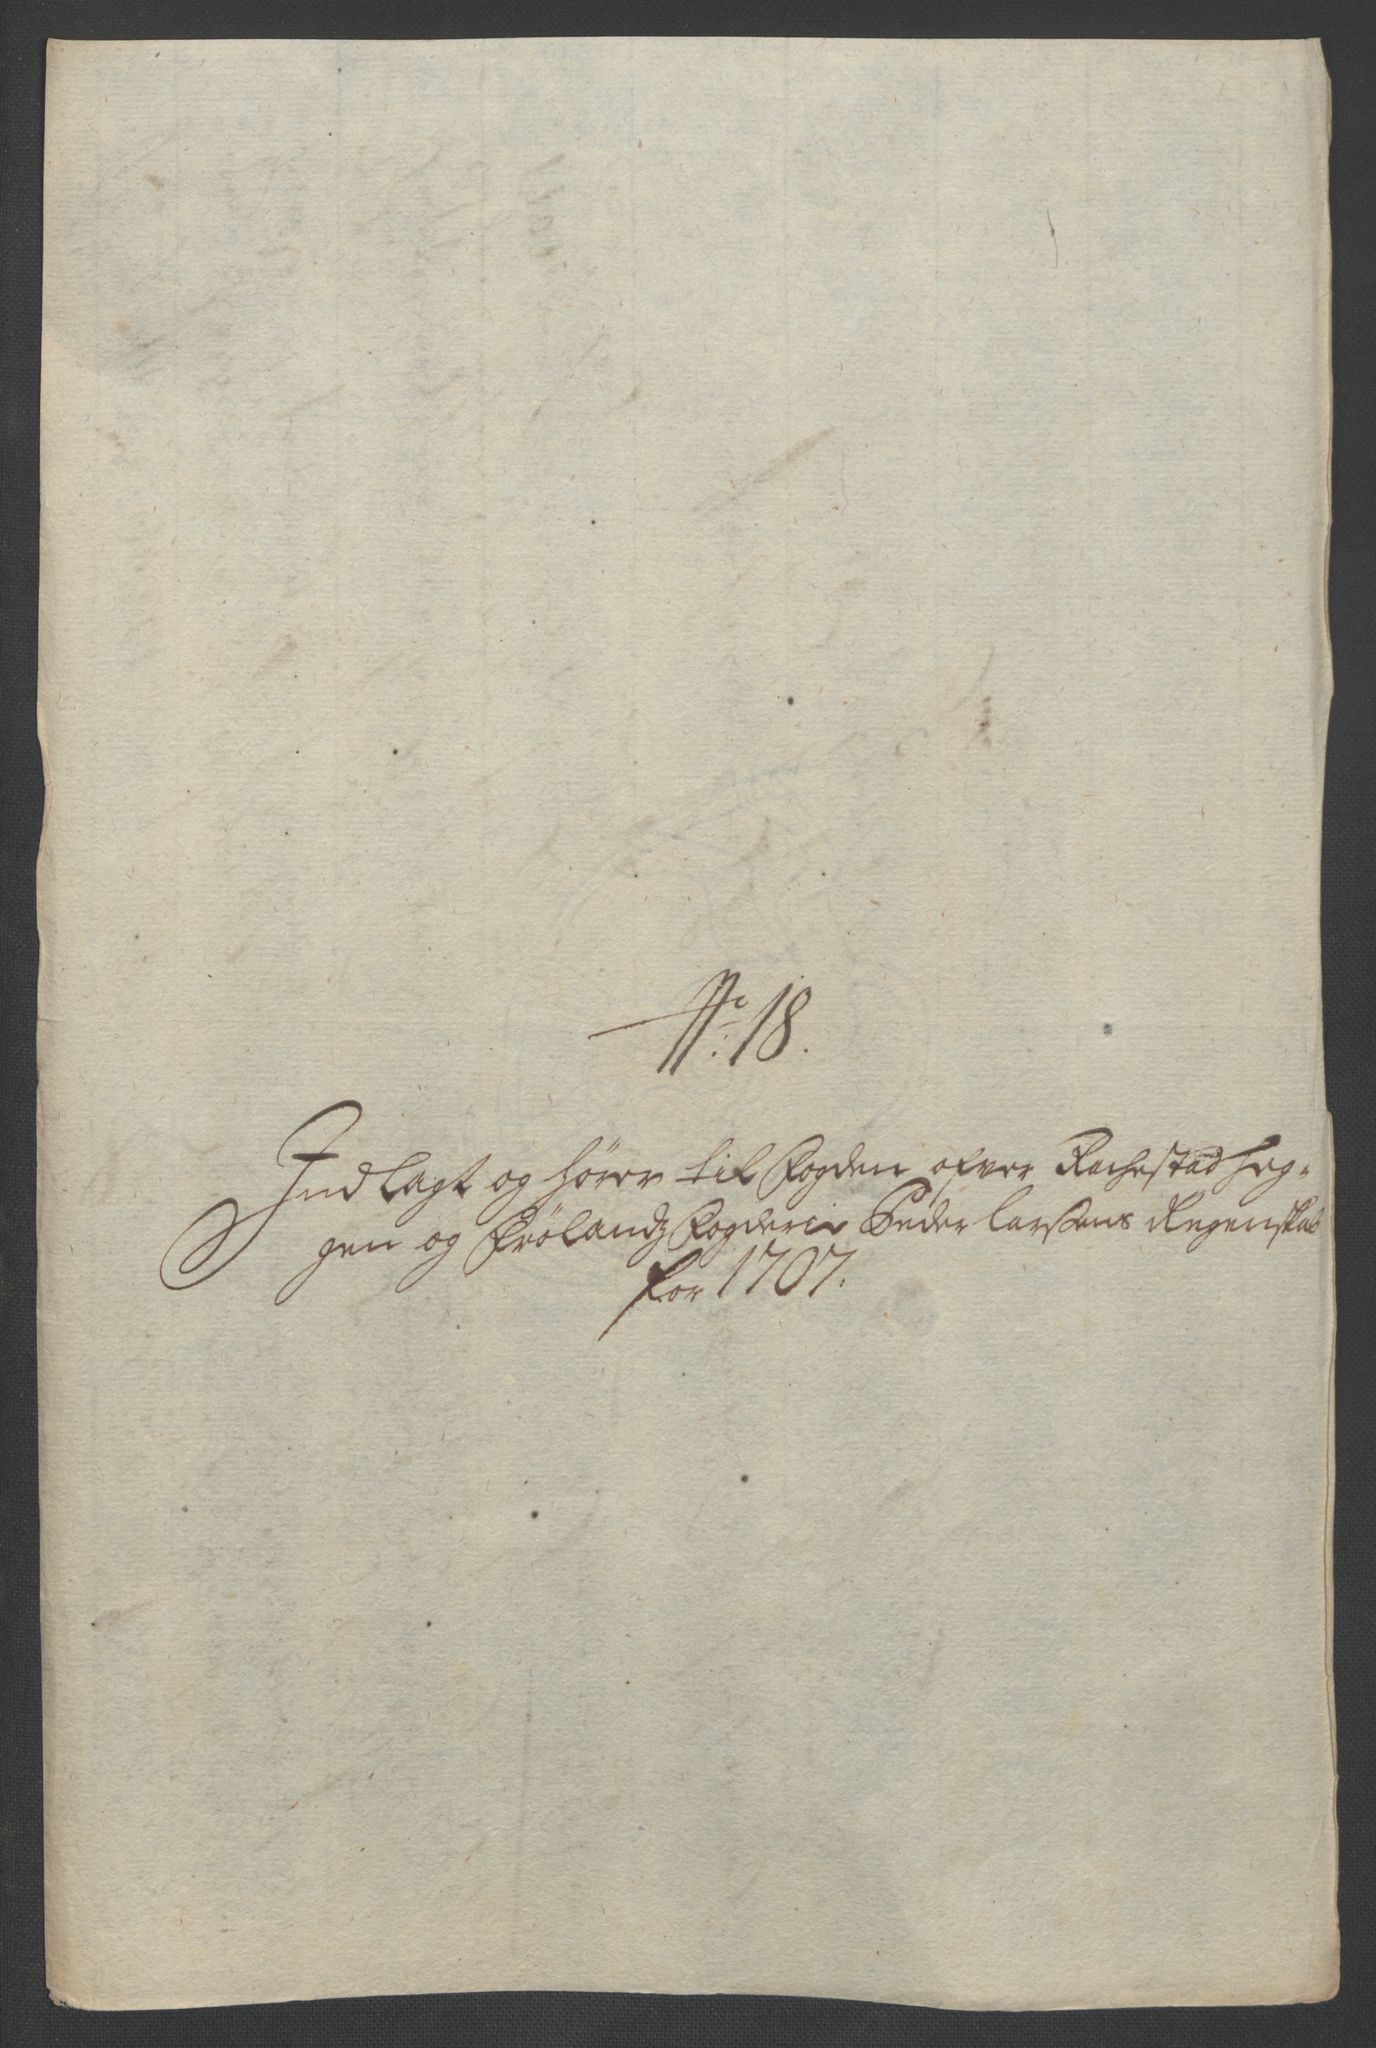 No: 18.
Indlagt og hører til Fogden ofver Rachestad Heg-
gen og Frölands Fogderie Peder Larsens Regenskab
for 1707.